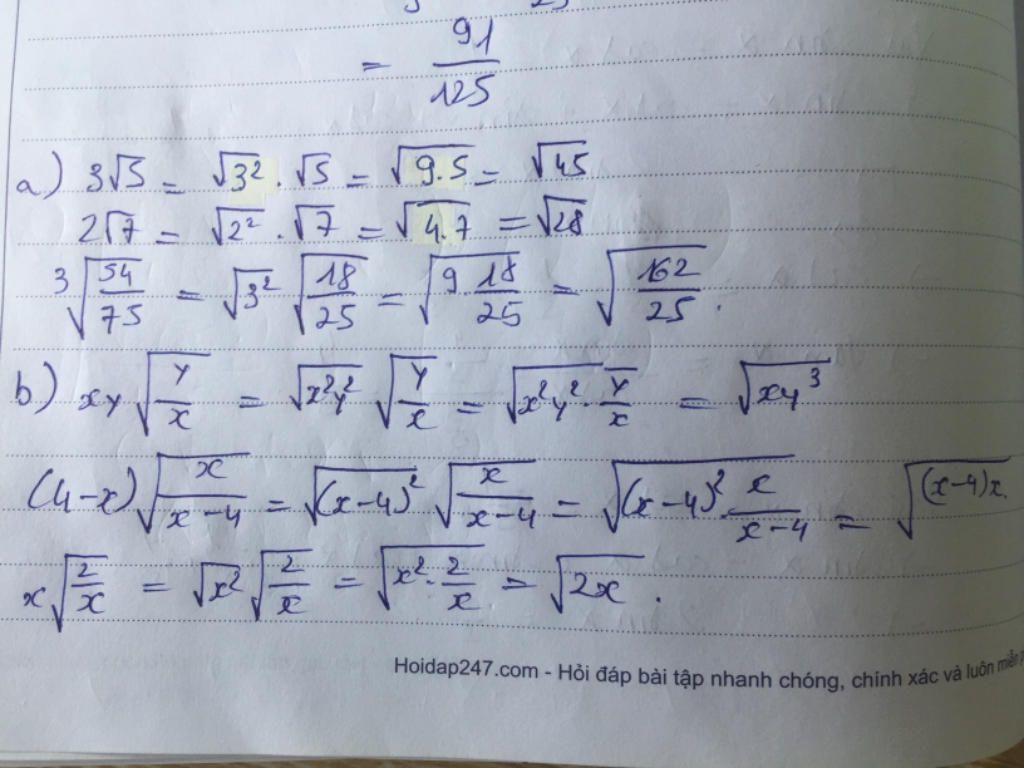 = 91/125
a) 3√5 = √3² . √5 = √9.5 = √45
2√7 = √2² . √7 = √4.7 = √28
3√(54/75) = √3² √(18/25) = √(9 . 18/25) = √(162/25) .
b) xy√(y/x) = √x²y² √(y/x) = √(x²y² . y/x) = √xy³
(4-x)√(x/(x-4)) = √(x-4)² √(x/(x-4)) = √((x-4)² . x/(x-4)) = √(x-4)x .
x√(2/x) = √x² √(2/x) = √(x² . 2/x) = √2x .
Hoidap247.com - Hỏi đáp bài tập nhanh chóng, chính xác và luôn miễn